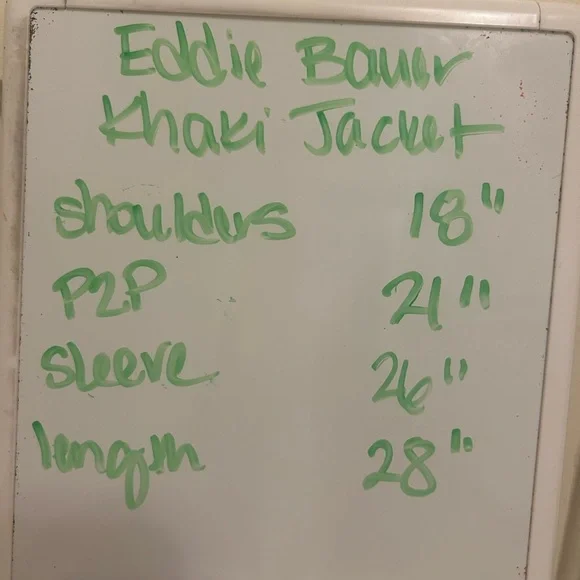 Eddie Bauer
Khaki Jacket
shoulders 18"
P2P 21"
sleeve 26"
length 28"